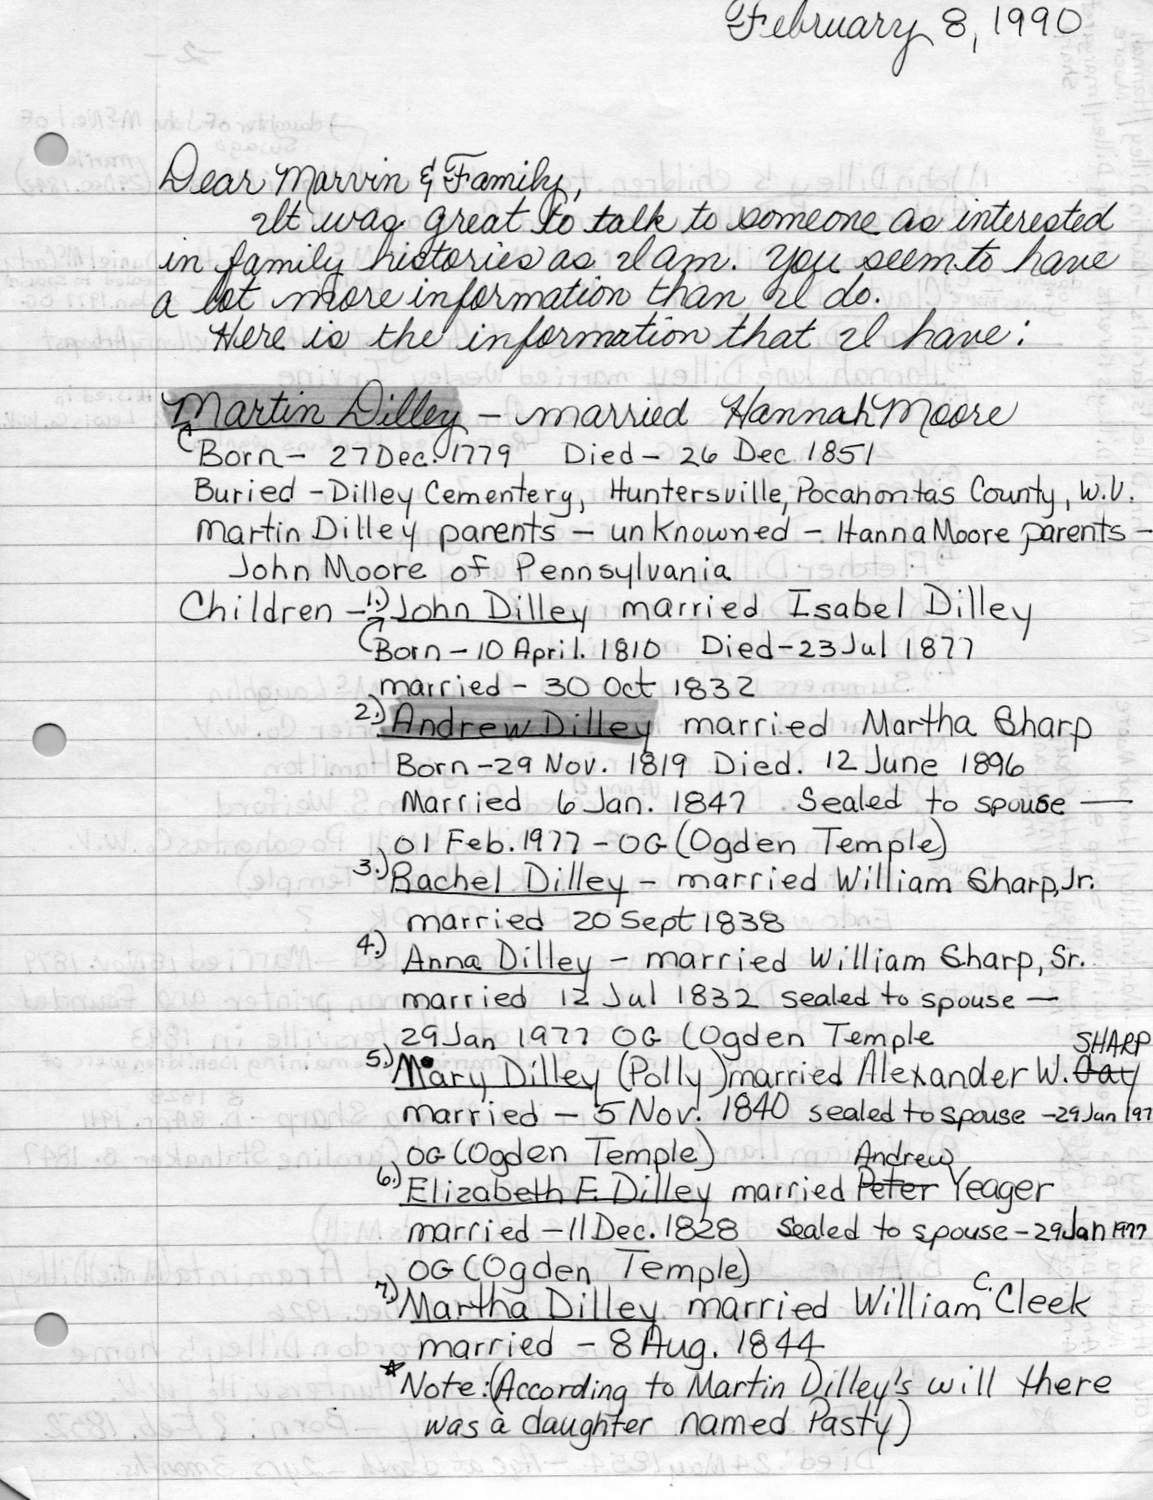 February 8, 1990
Dear Marvin & Family,
It was great to talk to someone as interested
in family histories as I am. You seem to have
a lot more information than I do.
Here is the information that I have:
Martin Dilley - married Hannah Moore
Born - 27 Dec. 1779 Died - 26 Dec 1851
Buried - Dilley Cementery, Huntersville, Pocahontas County, W.V.
Martin Dilley parents - unknowned - Hanna Moore parents -
John Moore of Pennsylvania
Children - 1.) John Dilley married Isabel Dilley
Born - 10 April. 1810 Died - 23 Jul 1877
married - 30 Oct 1832
2.) Andrew Dilley married Martha Sharp
Born - 29 Nov. 1819 Died. 12 June 1896
Married 6 Jan. 1847 Sealed to spouse —
01 Feb. 1977 - OG (Ogden Temple)
3.) Rachel Dilley - married William Sharp, Jr.
married 20 Sept 1838
4.) Anna Dilley - married William Sharp, Sr.
married 12 Jul 1832 sealed to spouse —
29 Jan 1977 OG (Ogden Temple
SHARP
5.) Mary Dilley (Polly) married Alexander W. Gay
married - 5 Nov. 1840 sealed to spouse - 29 Jan 197
OG (Ogden Temple)
Andrew
6.) Elizabeth E. Dilley married Peter Yeager
married - 11 Dec. 1828 Sealed to spouse - 29 Jan 1977
OG (Ogden Temple)
7.) Martha Dilley married William C. Cleek
married - 8 Aug. 1844
*Note: (According to Martin Dilley's will there
was a daughter named Pasty)